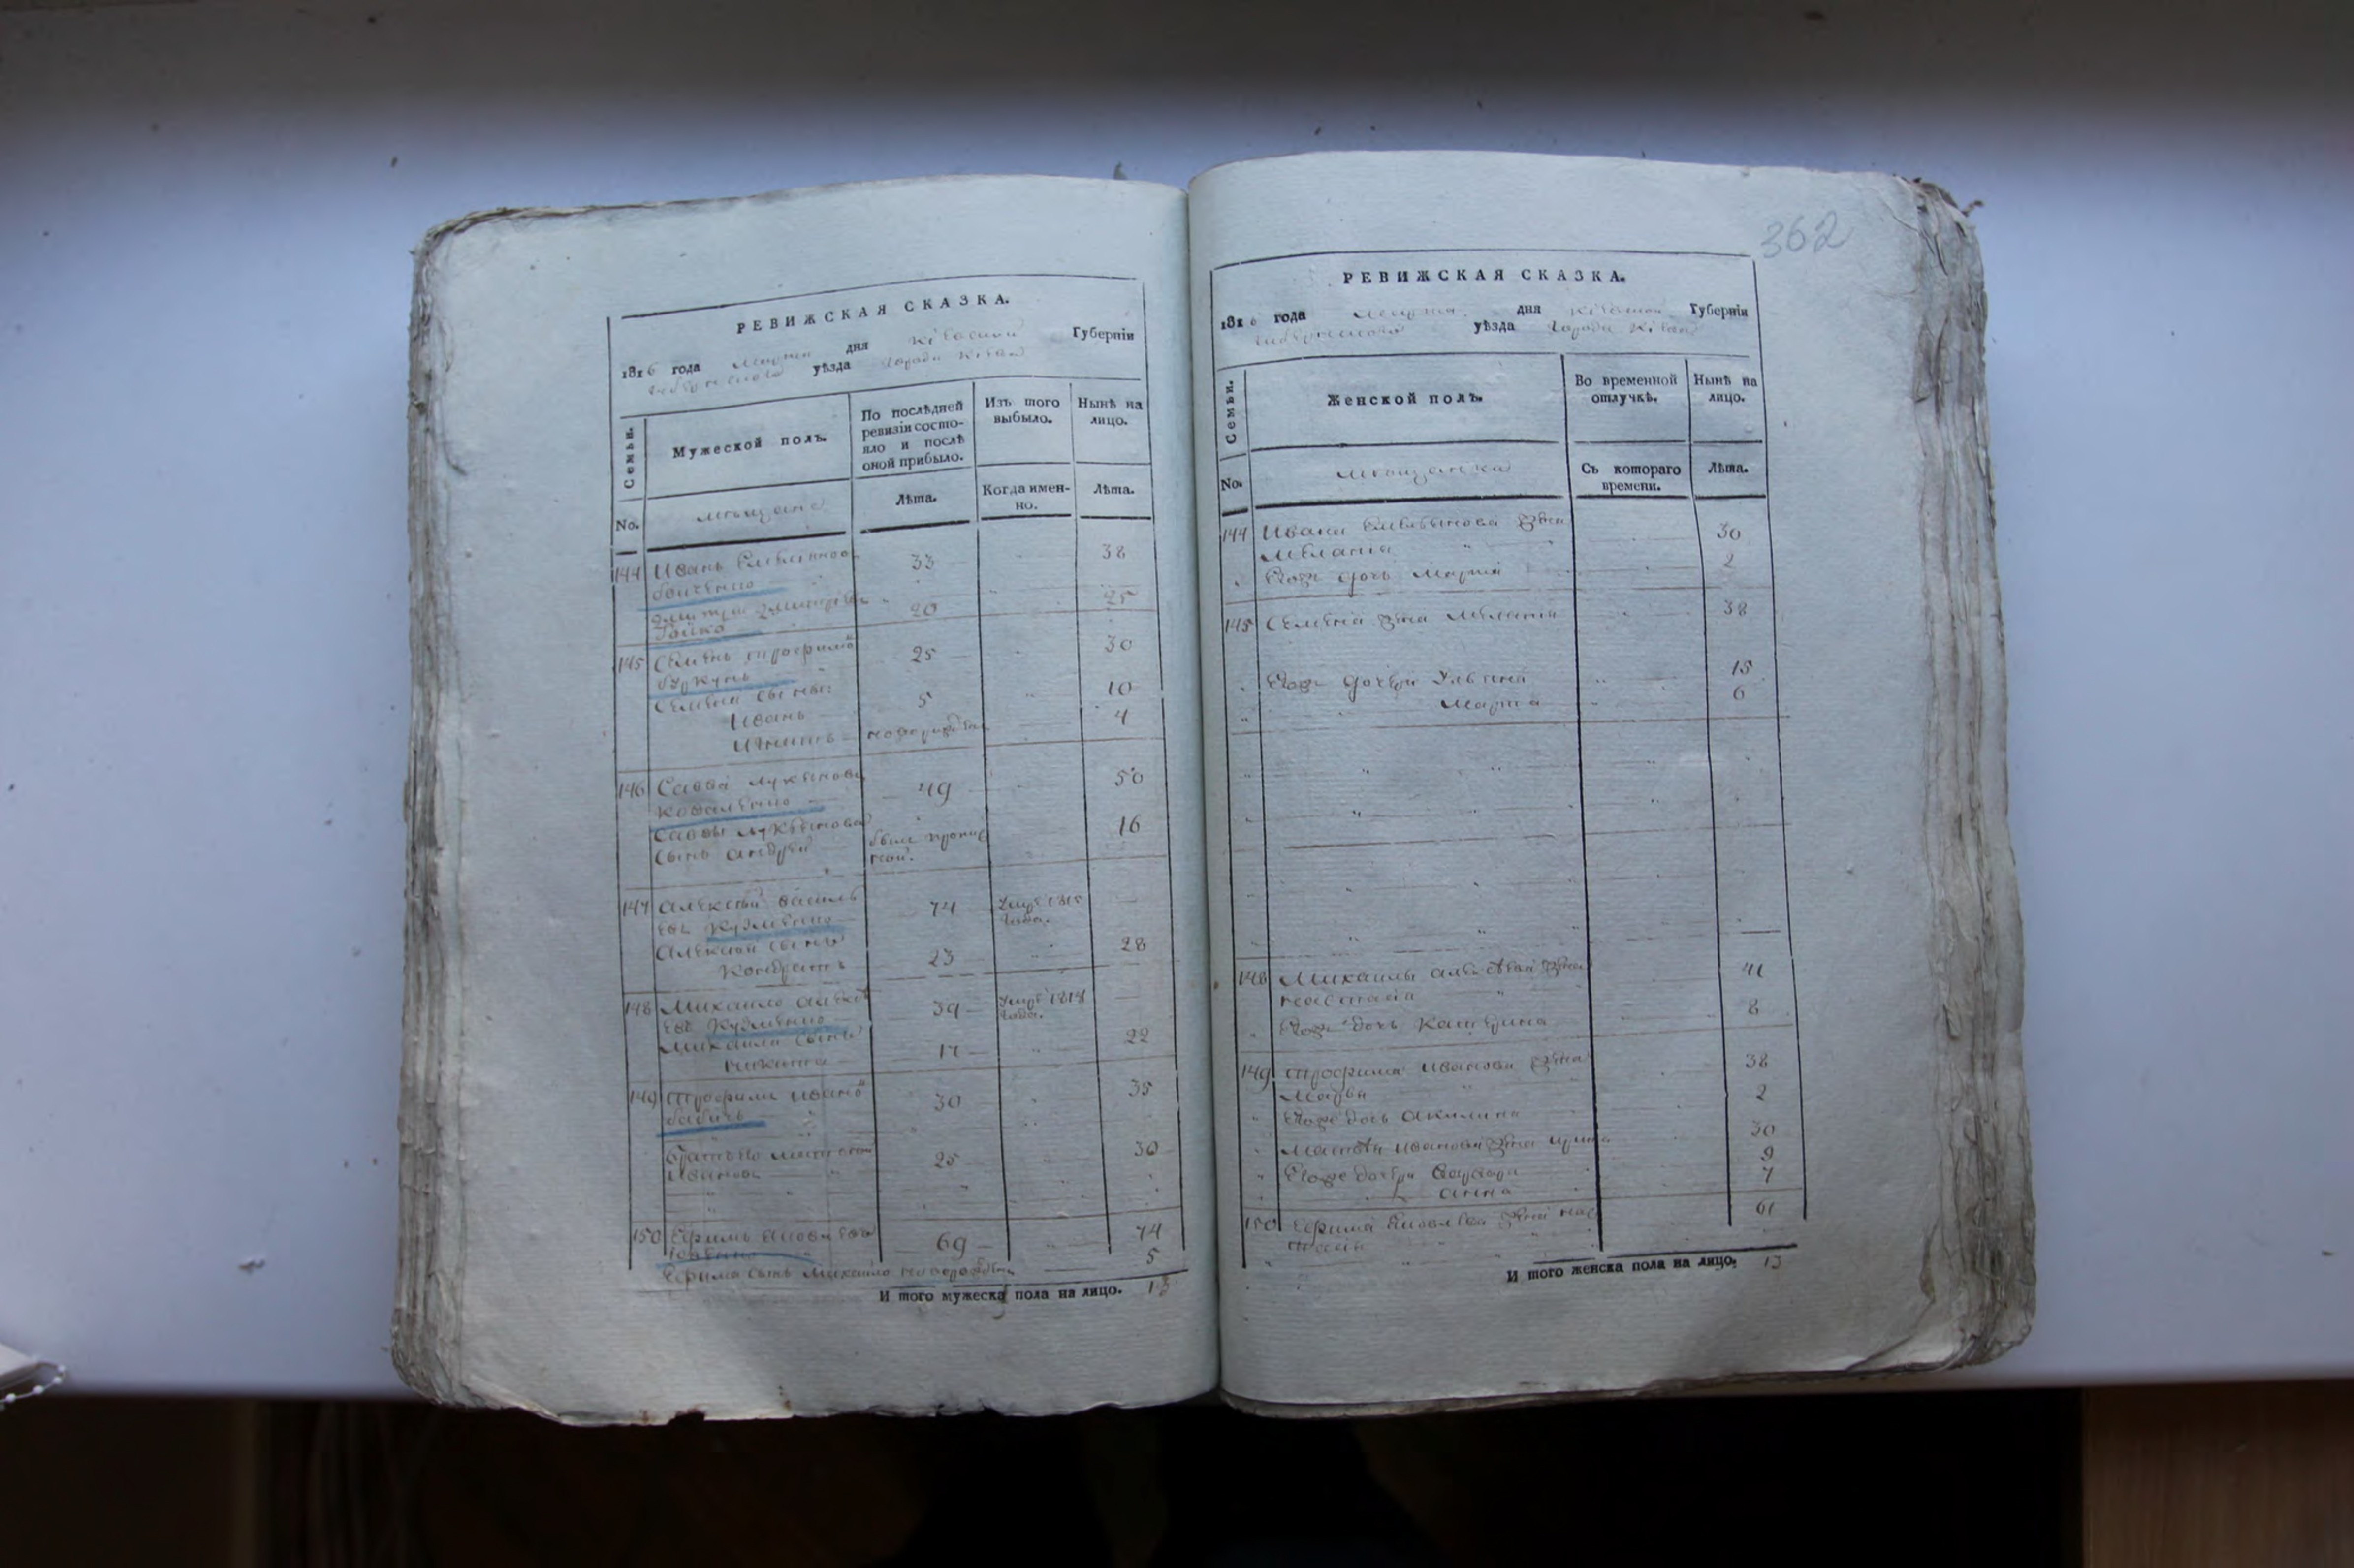 РЕВИЖСКАЯ СКАЗКА.
1816 года марта дня Кіевской Губерніи
уѣзда города Кіева
Семьи. Мужеской полъ. По послѣдней ревизіи состояло и послѣ оной прибыло. Изъ того выбыло. Нынѣ на лицо.
No. мѣщане Лѣта. Когда именно. Лѣта.
144 Иванъ 33 38
Дмитрій 20 25
Бойко
145 Семенъ трофимов 25 30
Семена сыны:
Иванъ 5 10
Игнатъ новорожден 4
146 Савва Лукьяновъ 49 50
Коваленко
Саввы Лукьянова 16
сынъ андрей были пропис
ной.
147 Алексѣй василь 74 Умре 1815
евъ Кузменко года.
Алексѣя сынъ
Кондратъ 23 28
148 Михайло алексѣ 39 Умре 1814
евъ Кузменко года.
Михайла сынъ 17 22
никита
149 трофимъ Ивановъ 30 35
бабичъ
братъ его 25 30
Ивановъ
150 Ефимъ Яковлевъ 69 74
Ефима сынъ Михайло новорожден 5
И того мужеска пола на лицо. 13
362
РЕВИЖСКАЯ СКАЗКА.
1816 года марта дня Кіевской Губерніи
уѣзда города Кіева
Семьи. Женской полъ. Во временной отлучкѣ. Нынѣ на лицо.
No. мѣщанска Съ котораго времени. Лѣта.
144 Ивана жена 30
Меланія
Егоже дочь Марія 2
145 Семена жена Меланія 38
Егоже дочери Ульяна 15
Марта 6
148 Михайлы алексѣева жена 41
настасія
Егоже дочь Катерина 8
149 трофима Иванова жена 38
Марья
Егоже дочь Акилина 2
Матвѣя Иванова жена ирина 30
Егоже дочери Варвара 9
анна 7
150 Ефима Яковлева жена нас 61
тасія
И того женска пола на лицо. 13